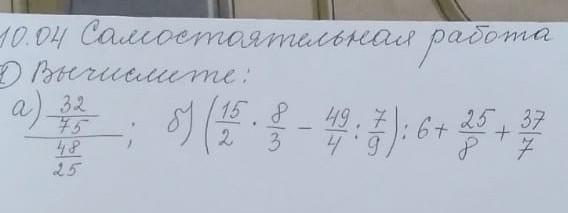 10.04 Самостоятельная работа
① Вычислите:
а) (32/75)/(48/25); б) (15/2 · 8/3 − 49/4 : 7/9) : 6 + 25/8 + 37/7